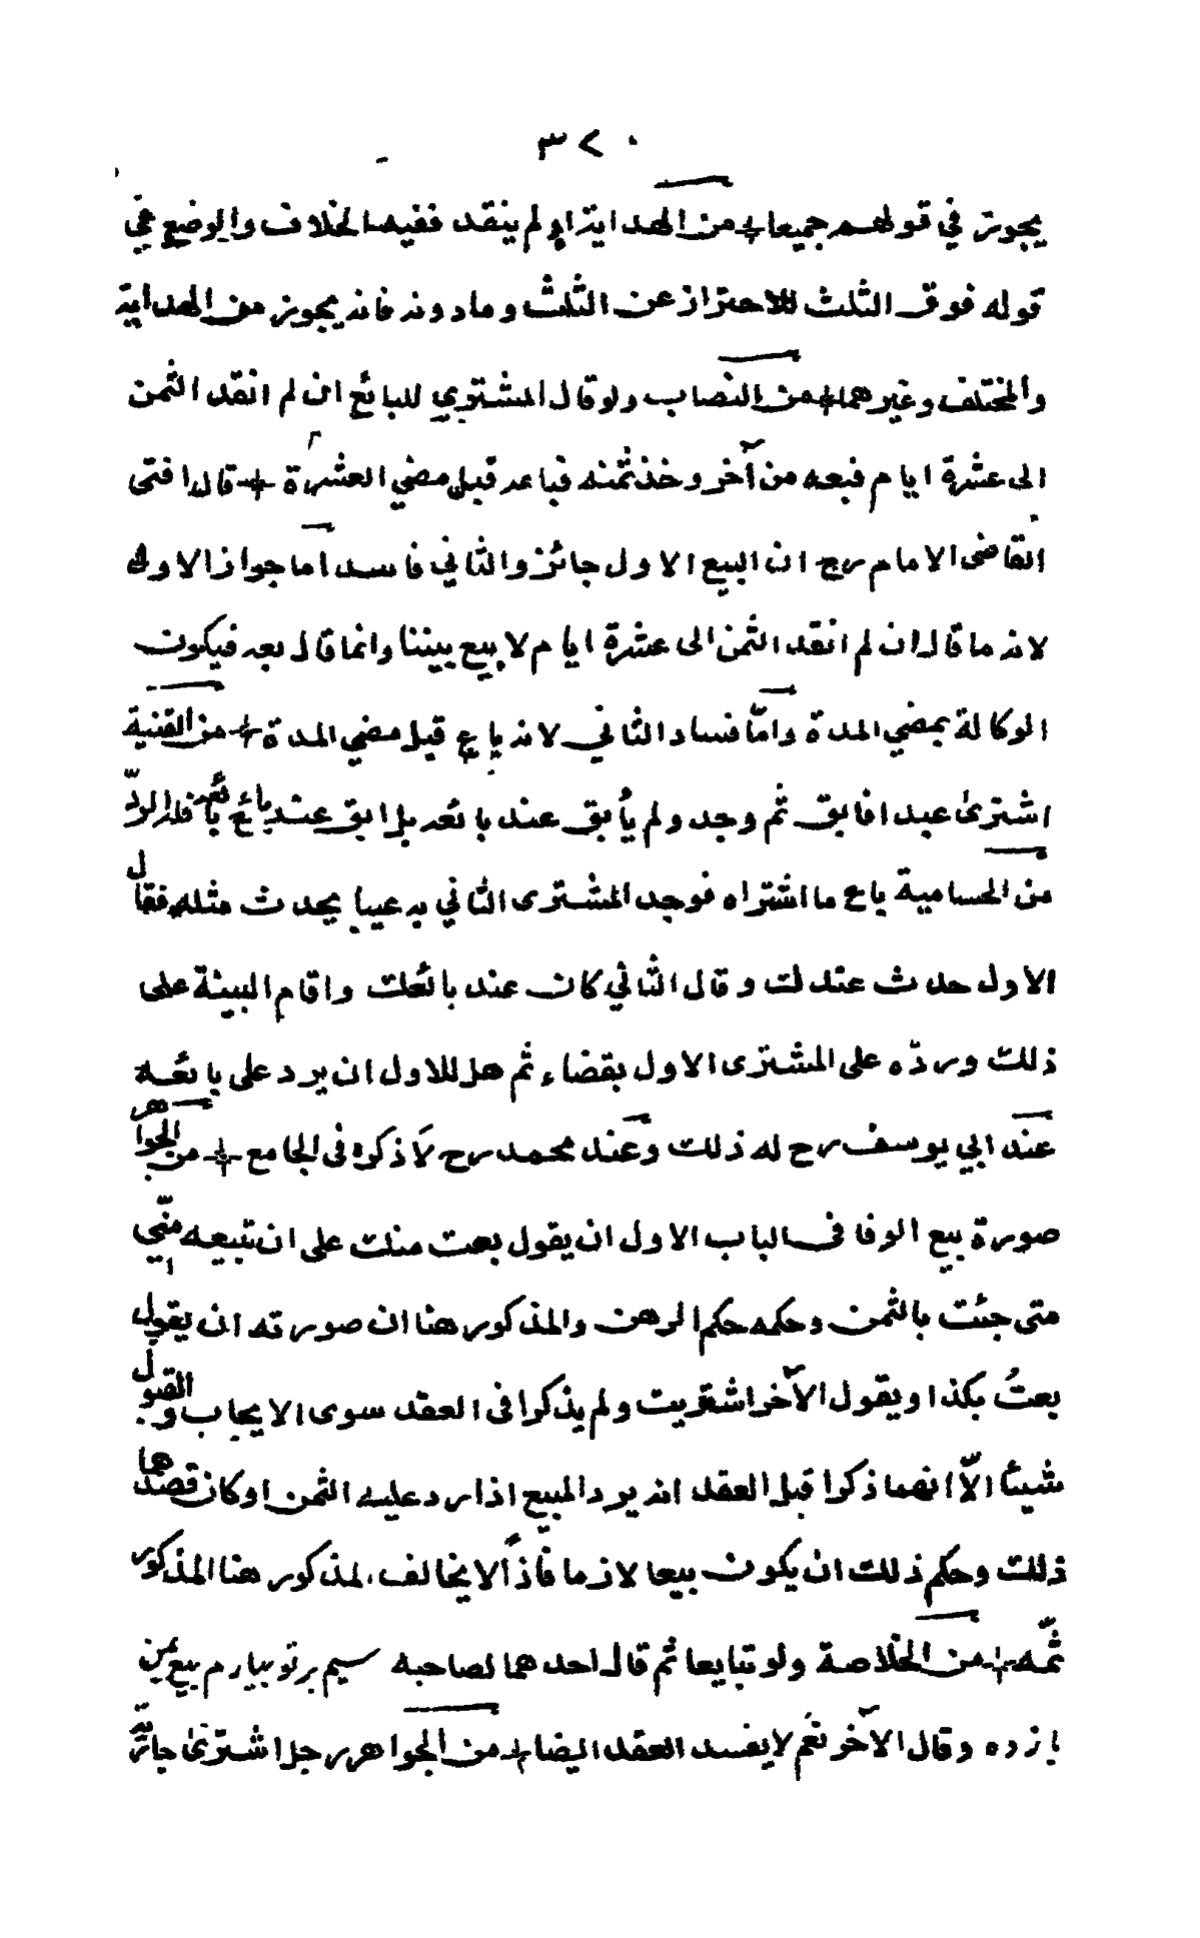 ٣٢٠
يجوز في قولهم جميعا + من الهداية ولو لم ينقد ففيه الخلاف والوضع في
قوله فوق الثلث للاحتراز عن الثلث وما دونه فانه يجوز من الهداية
والمختلف وغيرهما + من النصاب ولو قال المشتري للبائع ان لم انقد الثمن
الى عشرة ايام فبعه من آخر وخذ ثمنه فباعه قبل مضي العشرة + قال افتى
القاضى الامام رح ان البيع الاول جائز والثاني فاسد اما جواز الاول
لانه ما قال ان لم انقد الثمن الى عشرة ايام لا بيع بيننا وانما قال بعه فيكون
الوكالة بمضي المدة وامّا فساد الثاني لانه باع قبل مضي المدة + من القنية
اشترىٰ عبدا فابق ثم وجد ولم يأبق عند بائعه بل ابق عند بائع بائعه فله الردّ
من الحسامية باع ما اشتراه فوجد المشترى الثاني به عيبا يحدث مثله فقال
الاول حدث عندك وقال الثاني كان عند بائعك واقام البينة على
ذلك وردّه على المشترى الاول بقضاء ثم هل للاول ان يرد على بائعه
عند ابي يوسف رح له ذلك وعند محمد رح لا ذكره فى الجامع + من الجواهر
صورة بيع الوفا فى الباب الاول ان يقول بعت منك على ان تبيعه منّي
متى جئت بالثمن وحكمه حكم الرهن والمذكور هنا ان صورته ان يقول
بعتُ بكذا ويقول الآخر اشتريت ولم يذكرا فى العقد سوى الايجاب والقبول
شيئا الاّ انهما ذكرا قبل العقد انه يرد المبيع اذا رد عليه الثمن او كان قصدهما
ذلك وحكم ذلك ان يكون بيعا لازما فاذًا لا يخالف المذكور هنا المذكور
ثمّه + من الخلاصة ولو تبايعا ثم قال احدهما لصاحبه سيم برتو بيارم بيع بمن
باز ده وقال الآخر نعم لا يفسد العقد ايضا + من الجواهر رجل اشترىٰ جارية